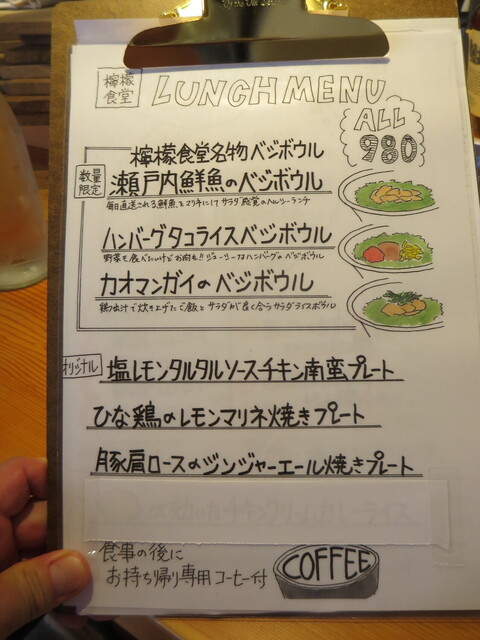 檸檬
食堂
LUNCH MENU
ALL
980
檸檬食堂名物ベジボウル
数量
限定
瀬戸内鮮魚のベジボウル
ハンバーグタコライスベジボウル
野菜も食べたいけどお肉も!!ジューシーなハンバーグのベジボウル
カオマンガイのベジボウル
鶏出汁で炊き上げたご飯とサラダが良く合うサラダライスボウル
オリジナル
塩レモンタルタルソースチキン南蛮プレート
ひな鶏のレモンマリネ焼きプレート
豚肩ロースのジンジャーエール焼きプレート
食事の後に
お持ち帰り専用コーヒー付
COFFEE